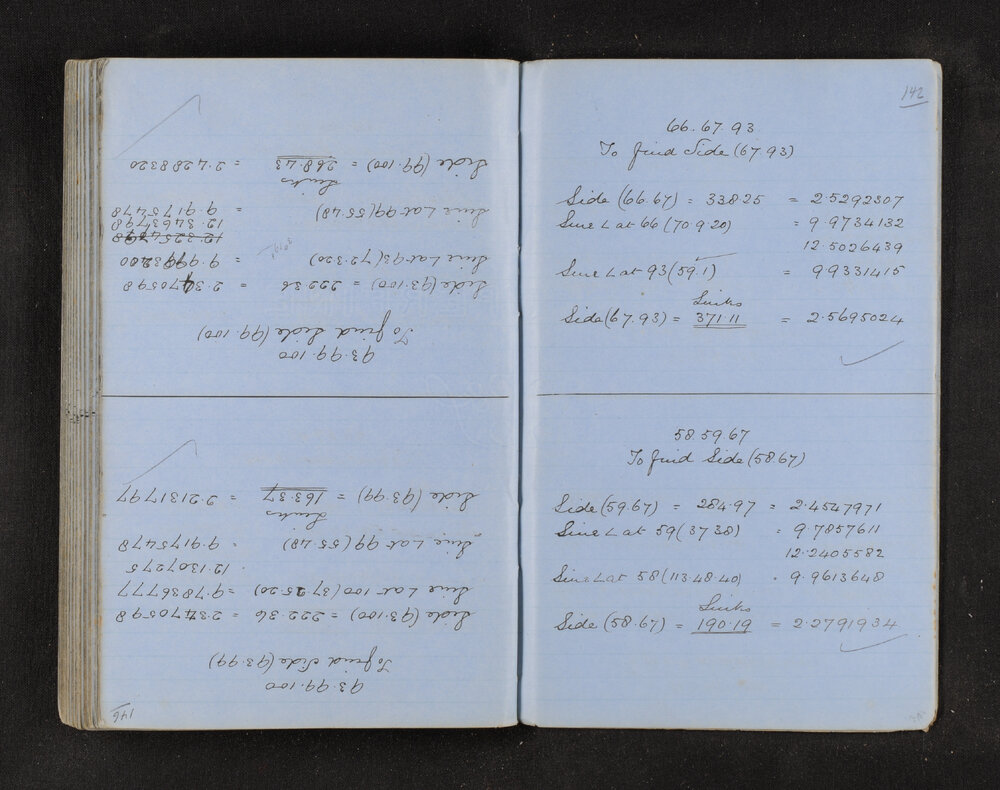 142
66.67.93
To find Side (67.93)
Side (66.67) = 338.25 = 2.5292307
Sine L at 66 (70.9.20) = 9.9734132
12.5026439
Sine L at 93 (59.1) = 9.9331415
Links
Side (67.93) = 371.11 = 2.5695024
58.59.67
To find Side (58.67)
Side (59.67) = 284.97 = 2.4547971
Sine L at 59 (37.38) = 9.7857611
12.2405582
Sine L at 58 (113.48.40) . 9.9613648
Links
Side (58.67) = 190.19 = 2.2791934
146
93.99.100
To find Side (93.99)
Side (93.100) = 222.36 = 2.3470598
Sine L at 100 (37.25.20) = 9.7836777
12.1307275
Sine L at 99 (55.48) = 9.9175478
Links
Side (93.99) = 163.37 = 2.2131797
93.99.100
To find Side (99.100)
Side (93.100) = 222.36 = 2.3470598
Sine L at 93 (72.3.20) = 9.9993200
12.3463798
Sine L at 99 (55.48) = 9.9175478
Links
Side (99.100) = 268.43 = 2.4288320